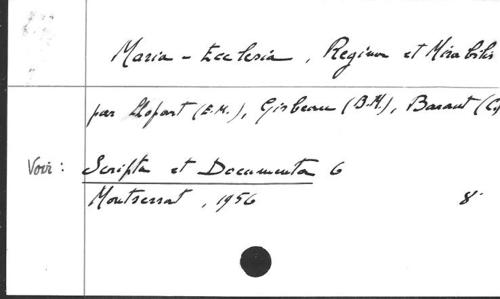 Maria - Ecclesia, Regina et Mirabilis
par Llopart (E.M.), Gisbeau (B.M.), Baraut (C
Voir : Scripta et Documenta 6
Montserrat, 1956 8°